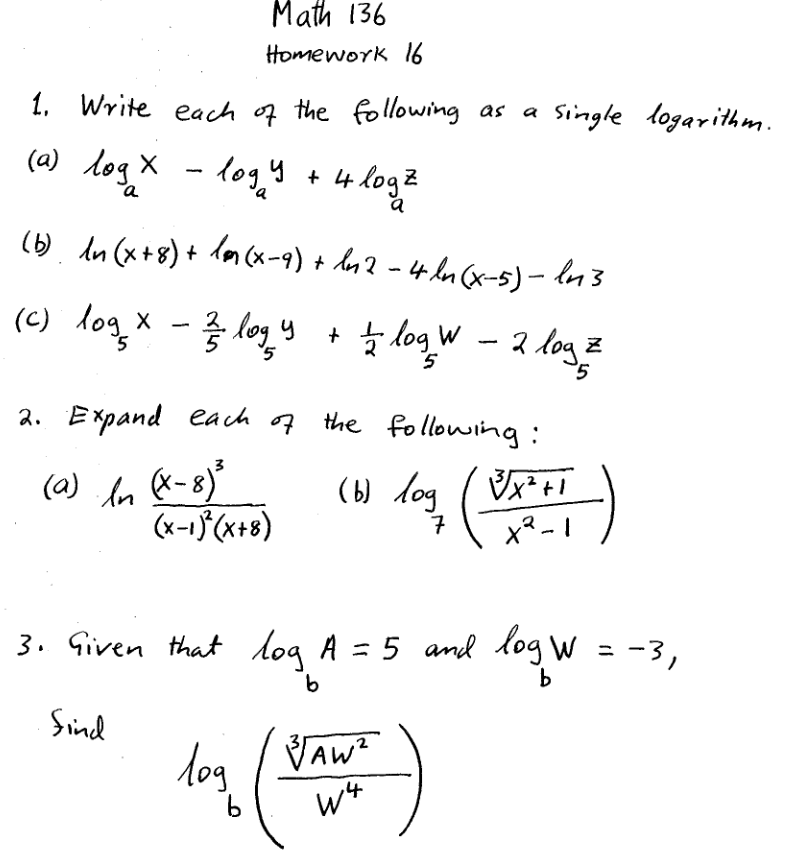 Math 136
Homework 16
1. Write each of the following as a single logarithm.
(a) log_a x − log_a y + 4 log_a z
(b) ln (x+8) + ln (x−9) + ln 2 − 4 ln (x−5) − ln 3
(c) log_5 x − 2/5 log_5 y + 1/2 log_5 W − 2 log_5 z
2. Expand each of the following :
(a) ln (x−8)³ / (x−1)²(x+8) (b) log_7 ( ∛(x²+1) / x²−1 )
3. Given that log_b A = 5 and log_b W = −3,
find
log_b ( ∛(AW²) / W⁴ )